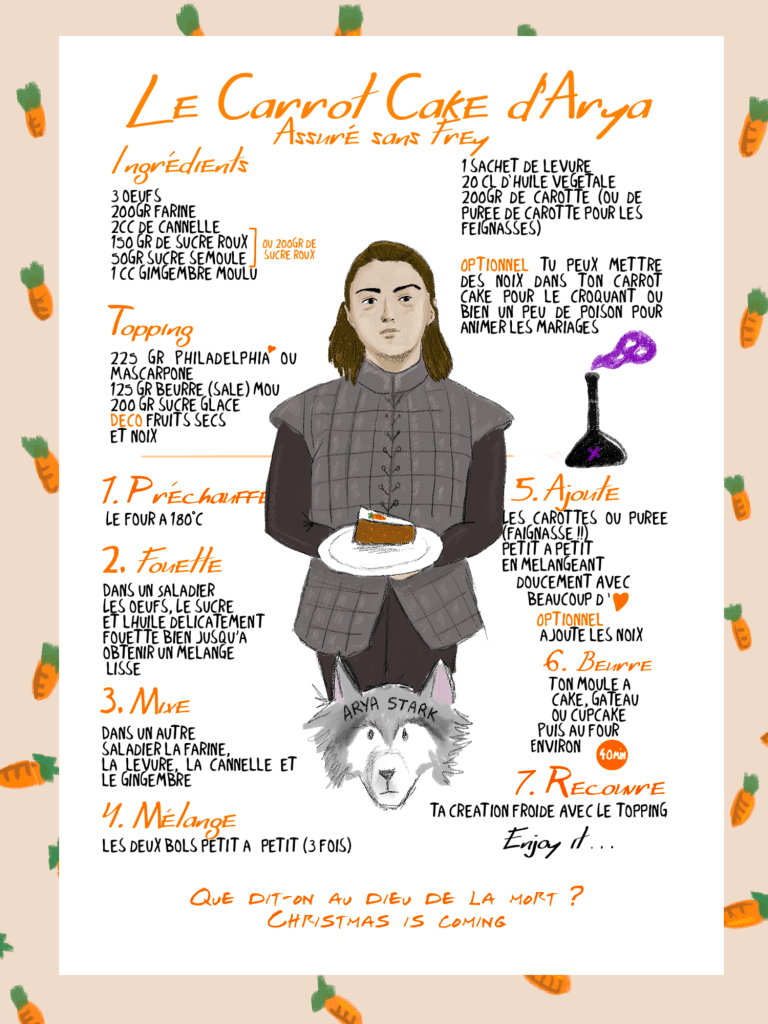 Le Carrot Cake d'Arya
Assuré sans Frey
Ingrédients
3 OEUFS
200GR FARINE
2CC DE CANNELLE
150 GR DE SUCRE ROUX
50GR SUCRE SEMOULE
1 CC GIMGEMBRE MOULU
OU 200GR DE
SUCRE ROUX
1 SACHET DE LEVURE
20 CL D'HUILE VEGETALE
200GR DE CAROTTE (OU DE
PUREE DE CAROTTE POUR LES
FEIGNASSES)
OPTIONNEL TU PEUX METTRE
DES NOIX DANS TON CARROT
CAKE POUR LE CROQUANT OU
BIEN UN PEU DE POISON POUR
ANIMER LES MARIAGES
Topping
225 GR PHILADELPHIA OU
MASCARPONE
125 GR BEURRE (SALE) MOU
200 GR SUCRE GLACE
DECO FRUITS SECS
ET NOIX
1. Préchauffe
LE FOUR A 180°C
2. Fouette
DANS UN SALADIER
LES OEUFS, LE SUCRE
ET LHUILE DELICATEMENT
FOUETTE BIEN JUSQU'A
OBTENIR UN MELANGE
LISSE
3. Mixe
DANS UN AUTRE
SALADIER LA FARINE,
LA LEVURE, LA CANNELLE ET
LE GINGEMBRE
4. Mélange
LES DEUX BOLS PETIT A PETIT (3 FOIS)
5. Ajoute
LES CAROTTES OU PUREE
(FAIGNASSE !!)
PETIT A PETIT
EN MELANGEANT
DOUCEMENT AVEC
BEAUCOUP D'
OPTIONNEL
AJOUTE LES NOIX
6. Beurre
TON MOULE A
CAKE, GATEAU
OU CUPCAKE
PUIS AU FOUR
ENVIRON 40min
7. Recouvre
TA CREATION FROIDE AVEC LE TOPPING
Enjoy it...
ARYA STARK
Que dit-on au dieu de la mort ?
Christmas is coming